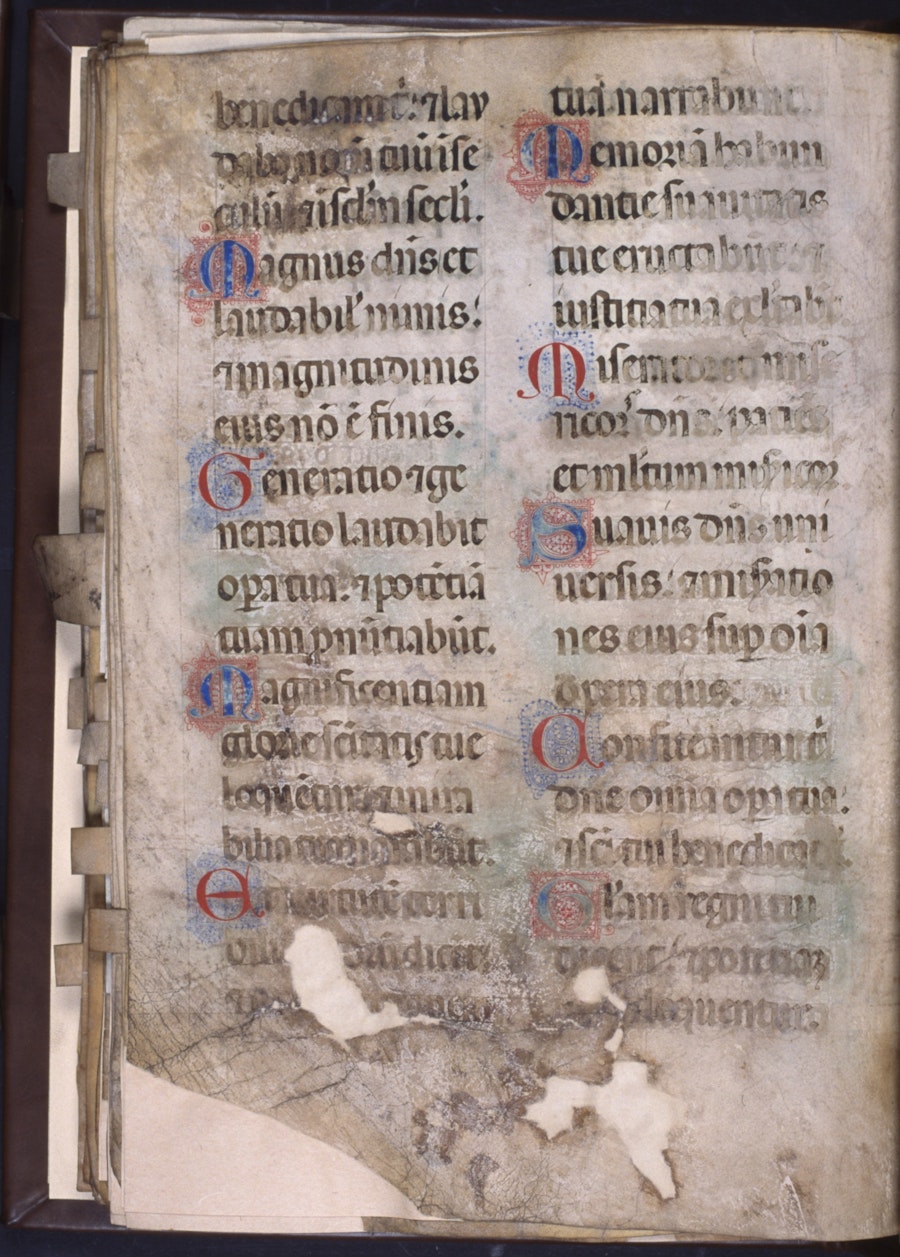 benedicam t̃: ⁊ lau
dabo nom̃ tuũ ĩ se
culũ ⁊ ĩ sclm̃ secli.
Magnus dñs et
laudabil' nimis:
⁊ magnitudinis
eius nõ ẽ finis.
Generatio ⁊ ge
neratio laudabit
oꝑa tua: ⁊ potẽtiã
tuam pnũtiabũt.
Magnificentiam
glorie scĩtatis tue
loquẽtur ⁊ mira
bilia tua narrabũt.
Et uirtutẽ terri
dicẽt
tuã narrabunt.
Memoriã habun
dantie suauitatis
tue eructabũt: ⁊
iustitia tua exltabt
Miserator et mise
ricor dñs: patiẽs
et mltum misicor
Suauis dñs uni
uersis: ⁊ misĩatio
nes eius suꝑ oĩa
opera eius:
Confiteantur t̃
dñe omia oꝑa tua:
⁊ scĩ tui benedicãt t̃.
Gl'am regni tui
dicent: ⁊ potentiã
loquentur.